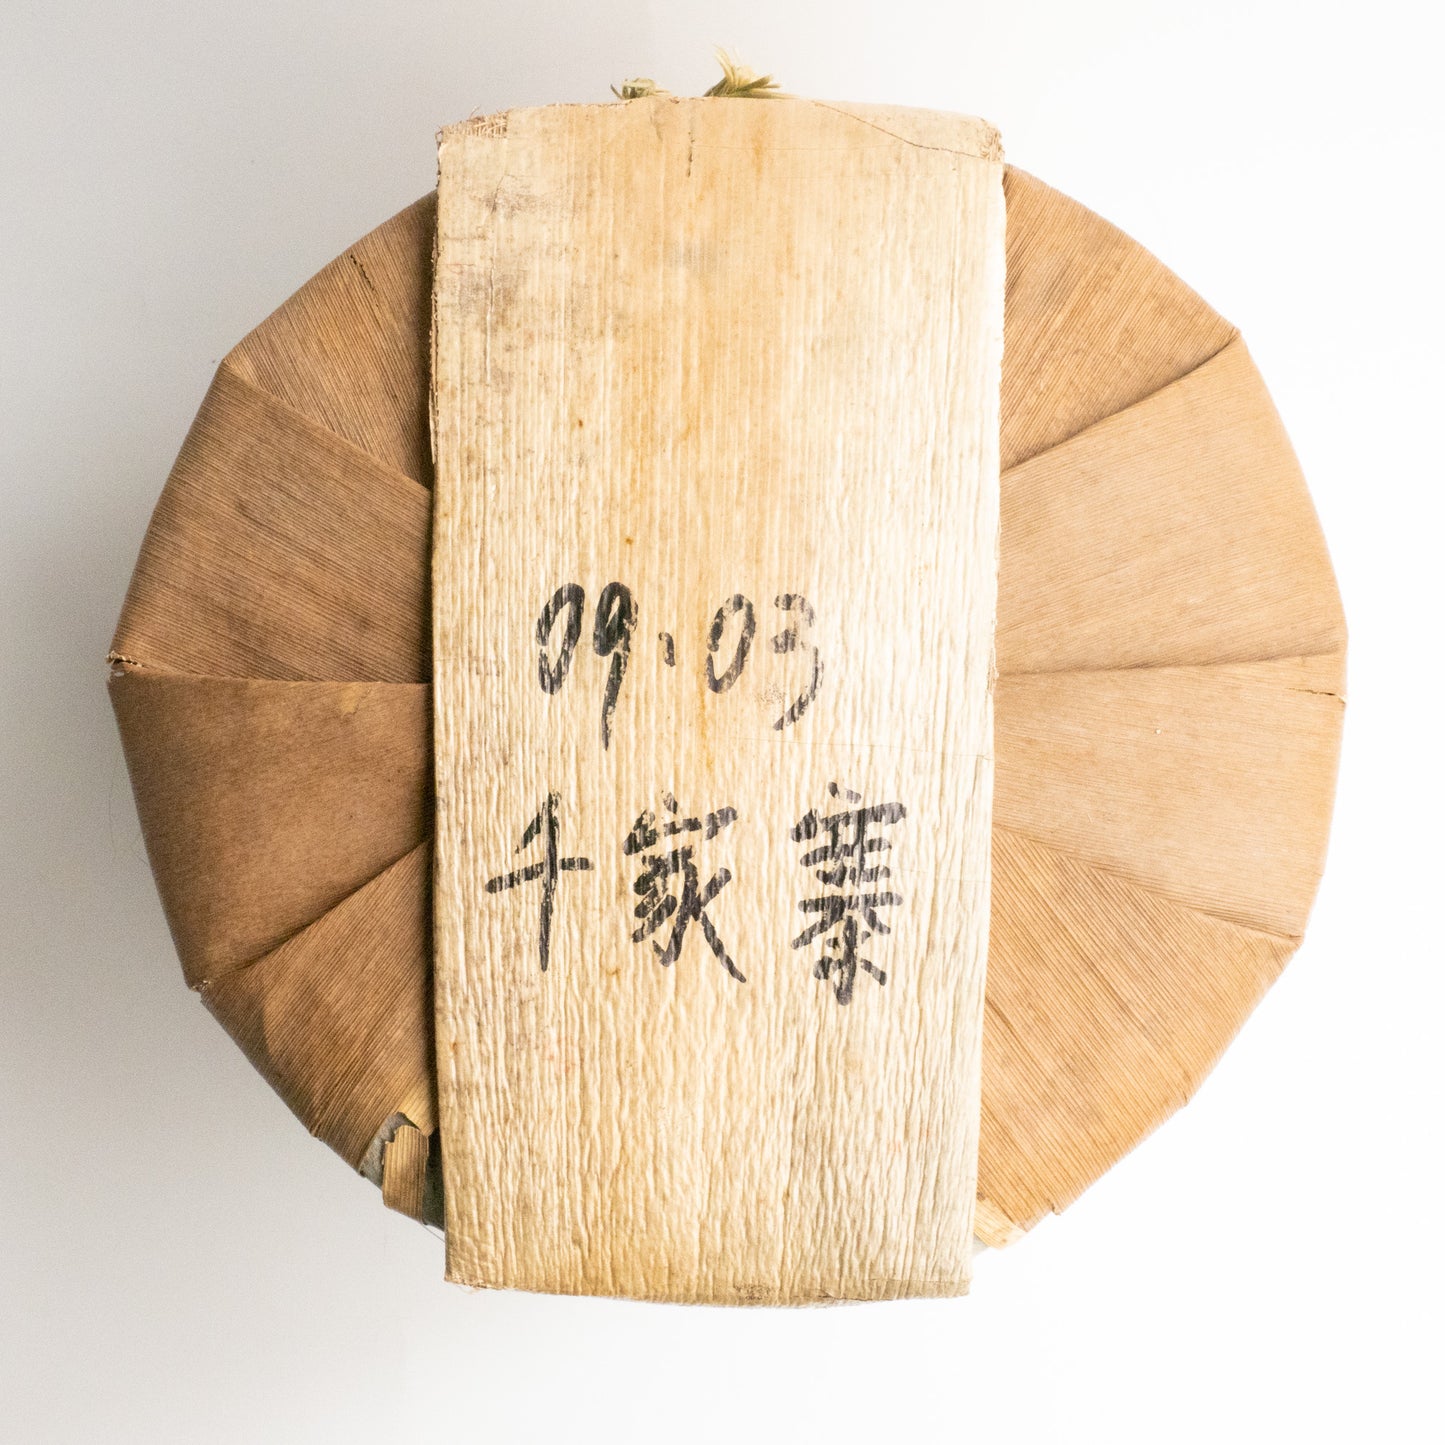 09.03
千家寨